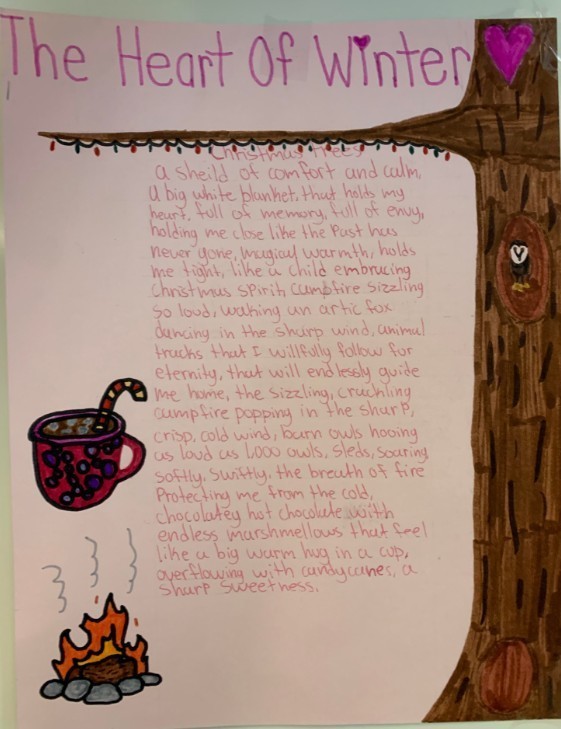 The Heart Of Winter
Christmas Trees
a sheild of comfort and calm,
a big white blanket, that holds my
heart, full of memory, full of envy,
holding me close like the Past has
never gone, magical warmth, holds
me tight, like a child embracing
Christmas spirit, campfire sizzling
so loud, waking an artic fox
dancing in the sharp wind, animal
tracks that I willfully follow for
eternity, that will endlessly guide
me home, the sizzling, crackling
campfire popping in the sharp,
crisp, cold wind, barn owls hooing
as loud as 1,000 owls, sleds, soaring
softly, swiftly, the breath of fire
Protecting me from the cold,
chocolatey hot chocolate with
endless marshmellows that feel
like a big warm hug in a cup,
overflowing with candycanes, a
sharp sweetness.